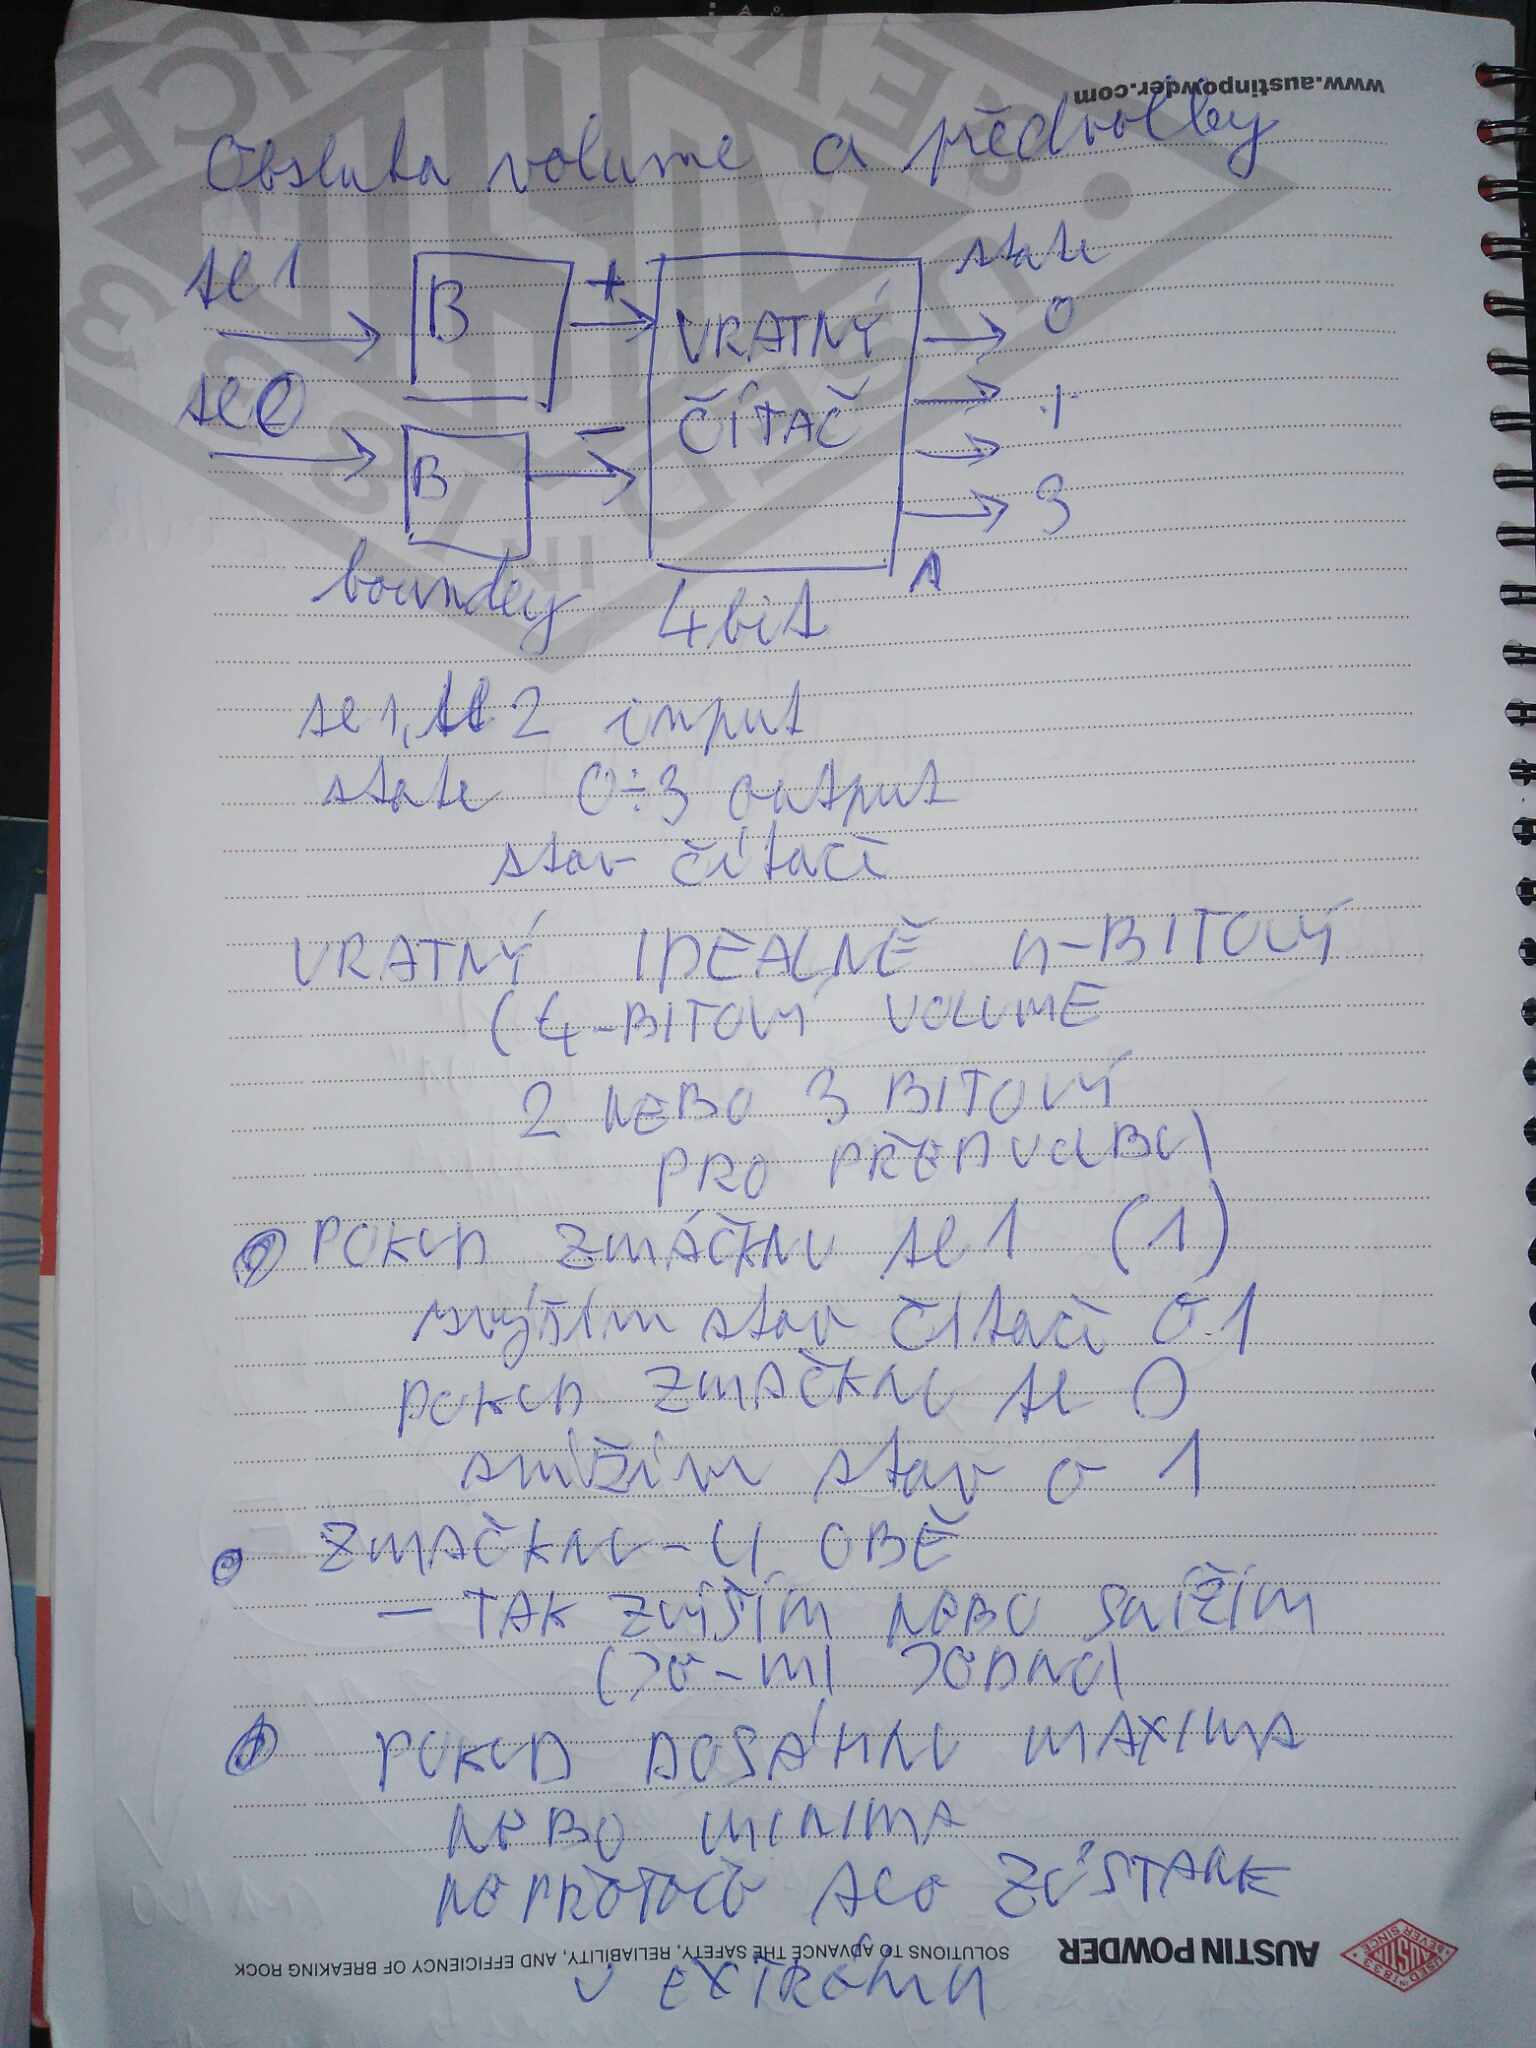 www.austinpowder.com
Obsluha volume a předvolby
se 1
B
+
VRATNÝ
ČÍTAČ
state
0
1
3
se 0
B
-
boundey 4bit
se 1, se 2 input
state 0÷3 output
stav čítače
VRATNÝ IDEALNĚ n-BITOVÝ
(4-BITOVÝ VOLUME
2 NEBO 3 BITOVÝ
PRO PŘEDVOLBU)
POKUD ZMÁČKNU se 1 (1)
zvýším stav čítače o 1
POKUD ZMAČKNU se 0
snížím stav o 1
ZMAČKNU-LI OBĚ
- TAK ZVÝŠÍM NEBO SNÍŽÍM
(JE-MI JEDNO)
POKUD DOSÁHNU MAXIMA
NEBO MINIMA
NEPŘETEČE ALE ZŮSTANE
V EXTRÉMU
AUSTIN POWDER
SOLUTIONS TO ADVANCE THE SAFETY, RELIABILITY, AND EFFICIENCY OF BREAKING ROCK